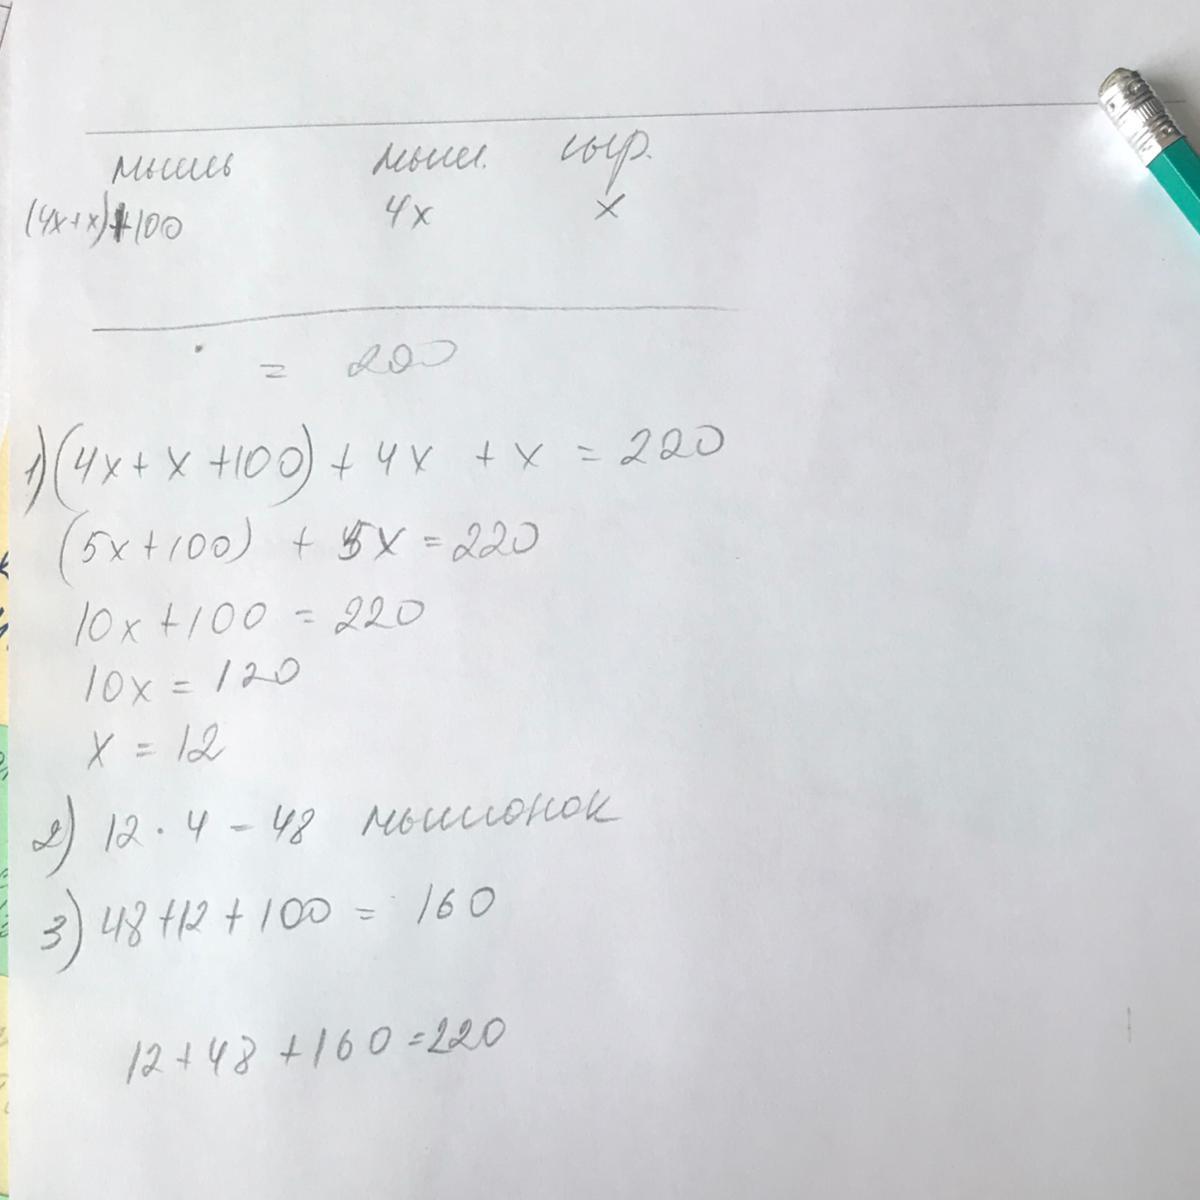 мышь мыш. сыр.
(4x+x)+100 4x x
= 200
1) (4x + x + 100) + 4x + x = 220
(5x + 100) + 5x = 220
10x + 100 = 220
10x = 120
x = 12
2) 12 · 4 = 48 мышонок
3) 48 + 12 + 100 = 160
12 + 48 + 160 = 220